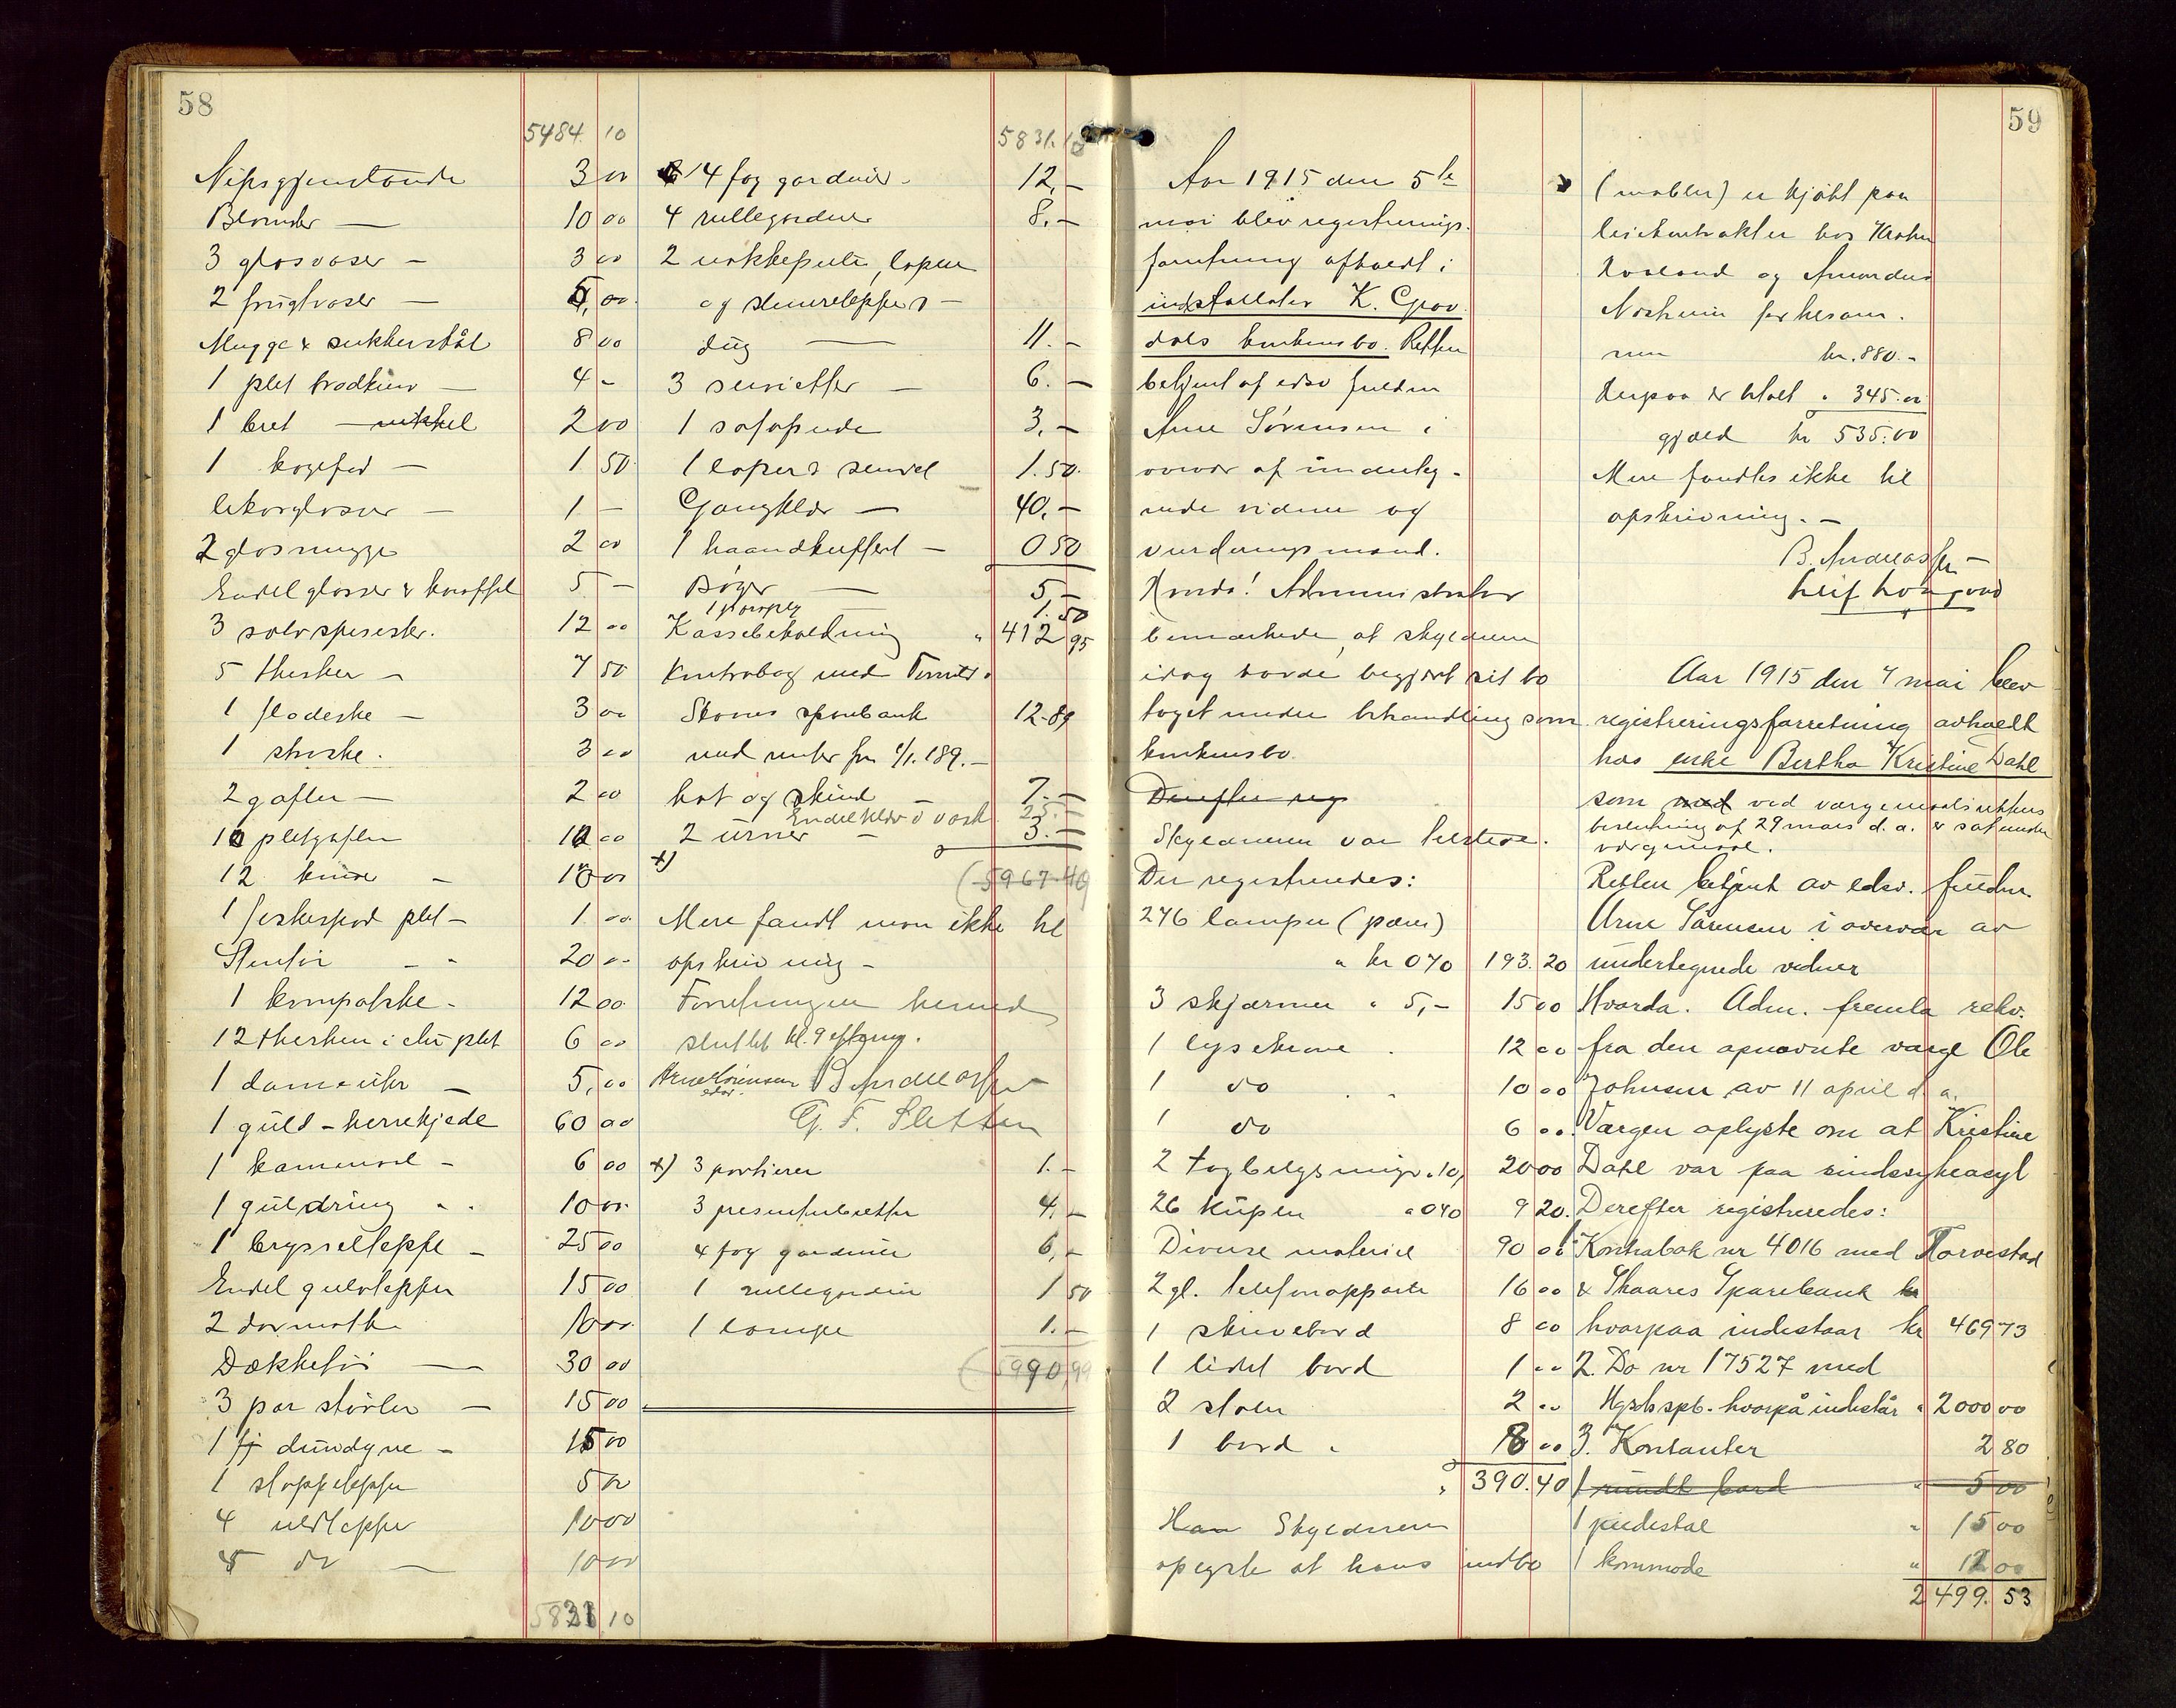 58
5484 10
Nipsgjenstande 3 00
Blomster — 10 00
3 glasvaser — 3 00
2 frugtvaser — 5,00
Mugge & sukkerskål 8 00
1 plet brødkurv — 4 -
1 bret — nikkel 2 00
1 kagefad — 1 50
likørglasser — 1 —
2 glasmugge 2 00
Endel glasser & karaffel 5 —
3 sølvspiseskr. 12 00
5 theskeer — 7 50
1 flødeske — 3 00
1 strøske. 3 00
2 gafler — 2 00
10 pletgafler 10 00
12 kniver — 10 00
1 fiskespad plet — 1 00
Stentøi — " 20 00
1 kompotske - 12 00
12 theskeer i etui plet 6 00
1 dameuhr — 5,00
1 guld-herrekjede 60 00
1 kammerad — 6 00
1 guldring " . 10 00
1 brysselteppe — 25 00
Endel gulvtepper 15 00
2 dørmatter 10 00
Dækketøi — 30 00
3 par støvler — 15 00
1 fj dundyne — 15 00
1 stoppeteppe 5 00
4 uldtepper 10 00
5 do — 10 00
5831 10
5831.10
14 fag gardiner - 12,-
4 rullegardiner 8,-
2 nakkeputer, løper
og stuereteppers —
dug — 11.-
3 servietter — 6.-
1 sofapude 3,-
1 løper 1.50
Gangklær — 40,-
1 haandkuffert — 0 50
Bøger — 5,-
1 1.50
Kassebeholdning " 412 95
Kontrabog med
Skaares sparebank 12-89
med renter fra 1/1.189.-
hat og skind — 7.-
Endel klær & vask 25.-
2 urner — 3.-
x)
(5967.40
Mere fandt man ikke til
opskrivning —
Forretningen hermed
sluttet kl. 9 efterm.
Arne Sørensen B. Andreassen
edsv.
G. F. Sletten
x) 3 portierer 1.-
3 presenterbretter 4.-
4 fag gardiner 6,-
1 rullegardin 1 50
1 lampe 1.-
(5990,99
59
Aar 1915 den 5te
mai blev registrerings-
forretning afholdt i
installatør K. Grov
dals konkursbo. Retten
betjent af edsv fuldm
Arne Sørensen i
overvær af underteg-
nede vidner og
vurderingsmænd.
Hvorda! Administrator
bemærkede, at skyldneren
idag havde begjært sit bo
taget under behandling som
konkursbo.
Derefter reg
Skyldneren var tilstede.
Der registreredes:
276 lamper (pærer)
" kr 0 70 193.20
3 skjærmer " 5,- 15 00
1 lysekrone . 12 00
1 do . " 10 00
1 do 6 00
2 " 10, 20 00
26 kupler " 0 40 9 20.
Diverse materiel 90 00
2 gl. telefonapparter 16 00
1 skrivebord 8 00
1 lidet bord 1 00
2 stoler 2 00
1 bord " 8 00
" 390.40
Han Skyldneren
oplyste at hans indbo
(møbler) er kjøbt paa
leiekontrakter hos Krohn
Roaland og Amandus
Norheim for tilsam-
men kr. 880.-
Herpaa er betalt " 345.00
gjæld kr 535.00
Mere fandtes ikke til
opskrivning. —
B. Andreassen —
Leif
Aar 1915 den 7 mai blev
registreringsforretning avholdt
hos enke Bertha Kristine Dahl
som med ved værgemaalsrettens
beslutning af 29 mars d.a. er sat under
værgemaal.
Retten betjent av edsv. fuldm.
Arne Sørensen i overvær av
undertegnede vidner
Hvorda. Adm. fremla rekv.
fra den opnævnte værge Ole
Johnsen av 11 april d.a.
Værgen oplyste om at Kristine
Dahl var paa sindssykeasyl
Derefter registreredes:
1. Kontrabok nr 4016 med Torvestad
& Skaares Sparebank kr
hvorpaa indestaar kr 469 73
2. Do nr 17527 med
Hgsds spb. hvorpå indestår " 2000 00
3. Kontanter 2 80
1 rundt bord " 5 00
1 piedestal " 15 00
1 kommode " 12 00
2499.53